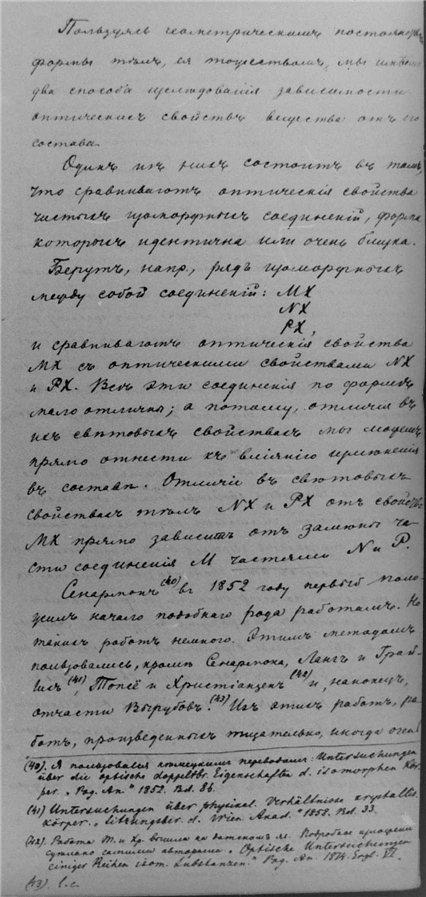 Пользуясь геометрическимъ постоянствомъ
формы тѣлъ, ея тождествомъ, мы имѣемъ
два способа изслѣдованія зависимости
оптическихъ свойствъ вещества отъ его
состава.
Одинъ изъ нихъ состоитъ въ томъ,
что сравниваютъ оптическія свойства
чистыхъ изоморфныхъ соединеній, форма
которыхъ идентична или очень близка.
Берутъ, напр., рядъ изоморфныхъ
между собой соединеній: MX
NX
PX,
и сравниваютъ оптическія свойства
MX съ оптическими свойствами NX
и PX. Всѣ эти соединенія по формѣ
мало отличны; а потому, отличія въ
ихъ свѣтовыхъ свойствахъ мы можемъ
прямо отнести къ вліянію измѣненія
въ составѣ. Отличіе въ свѣтовыхъ
свойствахъ тѣлъ NX и PX отъ свойствъ
MX прямо зависитъ отъ замѣны ча-
сти соединенія M частями N и P.
Сенармонъ (40) въ 1852 году первый поло-
жилъ начало подобнаго рода работамъ. Но
такихъ работъ немного. Этимъ методомъ
пользовались, кромѣ Сенармона, Лангъ и Грай-
лихъ (41), Топсё и Христіанценъ (42) и, наконецъ,
отчасти Вырубовъ. (43) Изъ этихъ работъ, ра-
ботъ, произведенныхъ тщательно, иногда очень
(40). Я пользовался нѣмецкимъ переводомъ: Untersuchungen
über die optische doppeltbr. Eigenschaften d. isomorphen Kör-
per. „Pog. An“ 1852. Bd. 86.
(41) Untersuchungen über physical. Verhältnisse krystallis.
Körper. „Sitzungsber. d. Wien. Akad.“ 1858. Bd. 33.
(42). Работа Т. и Хр. вышла на датскомъ яз. Подробное изложеніе
сдѣлано самими авторами. „Optische Untersuchungen
einiger Reihen isom. Substanzen.“ Pog. An. 1874. Ergb. VI.
(43) l. c.